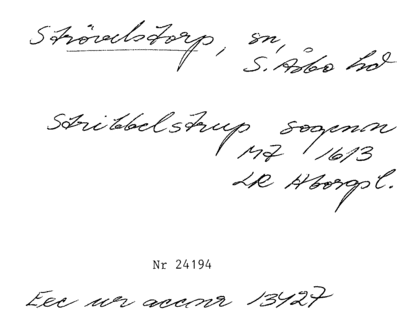 Strövelstorp, sn,
S. Åsbo hd
Stribbelstrup sogenn
M7 1613
LR Åborgl.
Nr 24194
Exc ur accnr 13427